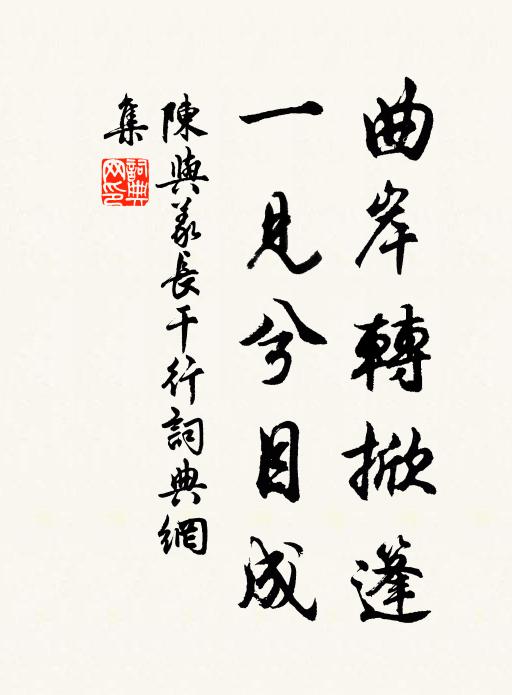 曲岸轉掀篷
一見兮目成
陳與義長干行詞典網
集
詞典網印